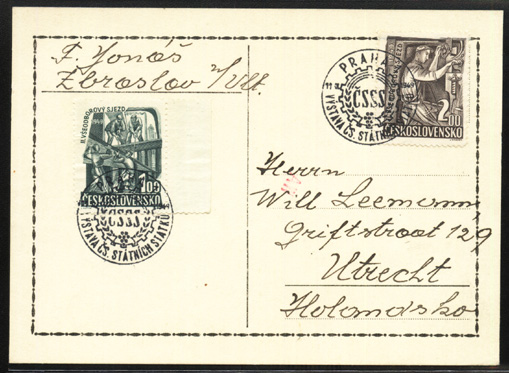 F. Jonáš
Zbraslav n/Vlt.
II. VŠEODBOROVÝ SJEZD
1.00
ČESKOSLOVENSKO
ČSSS
VÝSTAVA ČS. STÁTNÍCH STATKŮ
PRAHA
ČSSS
VÝSTAVA ČS. STÁTNÍCH
VŠEODBOROVÝ SJEZD
2.00
ČESKOSLOVENSKO
Herrn
Will Leemann
Griftstraat 129
Utrecht
Holandsko